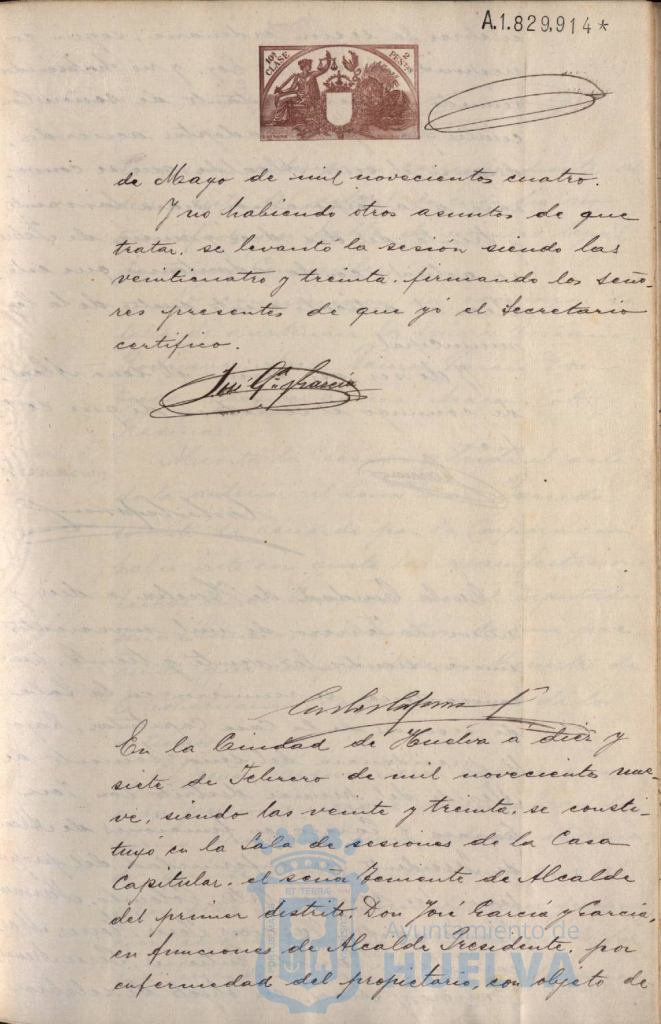 A.1.829.914*
10ª CLASE
2 PESETAS
de Mayo de mil novecientos cuatro.
Y no habiendo otros asuntos de que
tratar, se levantó la sesión siendo las
veinticuatro y treinta, firmando los seño-
res presentes de que yó el Secretario
certifico.
José Gª García
En la Ciudad de Huelva a diez y
siete de Febrero de mil novecientos nue-
ve, siendo las veinte y treinta, se consti-
tuyó en la Sala de sesiones de la Casa
Capitular, el señor Temiente de Alcalde
del primer distrito, Don José García y García,
en funciones de Alcalde Presidente, por
enfermedad del propietario, con objeto de
Ayuntamiento de
HUELVA